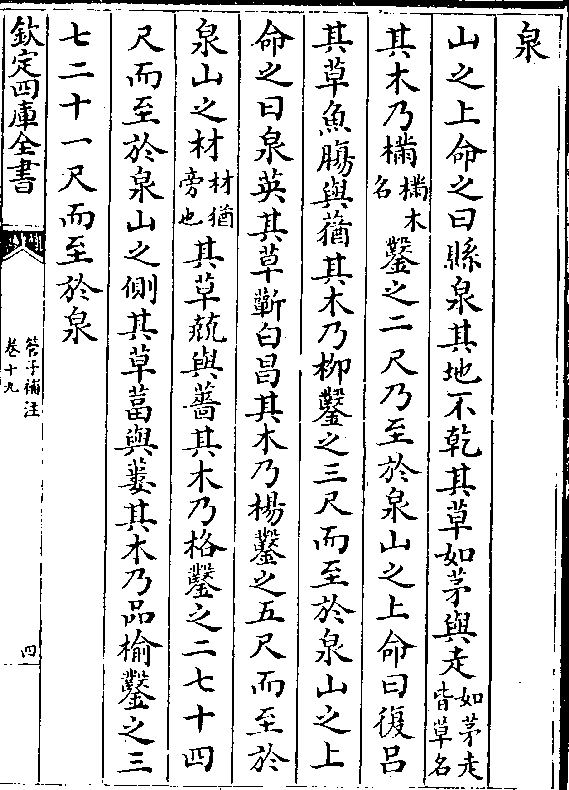 泉
山之上命之曰縣泉其地不乾其草如茅與走如茅走皆草名
其木乃樠樠木名鑿之二尺乃至於泉山之上命曰復呂
其草魚腸與蕕其木乃柳鑿之三尺而至於泉山之上
命之曰泉英其草蘄白昌其木乃楊鑿之五尺而至於
泉山之材材猶旁也其草兢與薔其木乃格鑿之二七十四
尺而至於泉山之側其草葍與蔞其木乃品榆鑿之三
七二十一尺而至於泉
欽定四庫全書
管子補注
卷十九
四